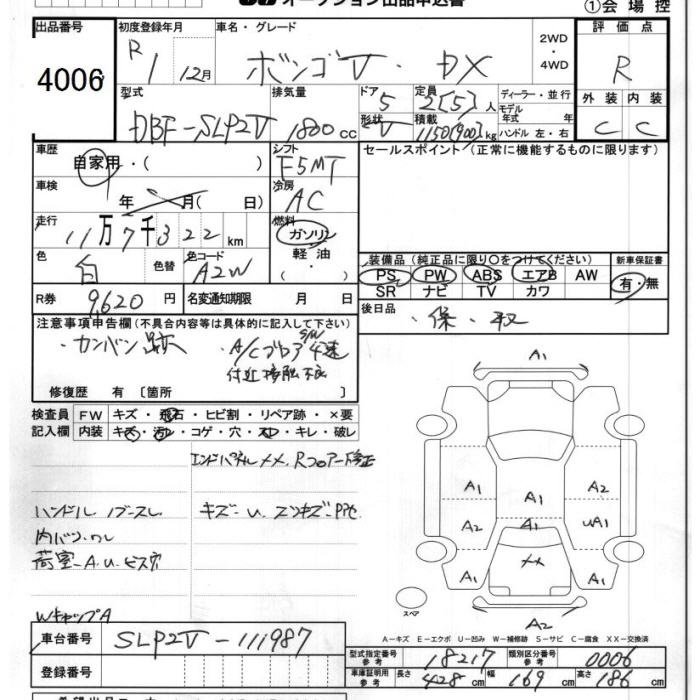 オークション出品申込書
①会場控
出品番号 4006
初度登録年月 R1 12月
車名・グレード ボンゴV・DX
2WD・4WD
評価点 R
型式 DBF-SLP2V
排気量 1800cc
ドア 5
形状 V
定員 2(5)人
積載 1150(900)kg
ディーラー・並行
モデル年式 年
ハンドル 左・右
外装 C
内装 C
車歴 自家用・( )
シフト F5MT
セールスポイント(正常に機能するものに限ります)
車検 年 月( 日)
冷房 AC
走行 11万7千322km
燃料 ガソリン
軽油
( ・ )
色 白
色替
色コード A2W
装備品(純正品に限り○をつけてください)
PS PW ABS エアB AW
SR ナビ TV カワ
新車保証書
有・無
R券 9,620円
名変通知期限 月 日
後日品 ・保・取
注意事項申告欄(不具合内容等は具体的に記入して下さい)
・カンバン跡 ・A/Cブロア S/W 4速
付近接触不良
修復歴 有〔箇所 〕
検査員 FW キズ・飛石・ヒビ割・リペア跡・×要
記入欄 内装 キズ・汚れ・コゲ・穴・スレ・キレ・破レ
エンドパネルXX、Rフロアー修正
ハンドル ノブスレ
キズ-U
内バン・ワレ
荷室-A.U.ビス穴
WキャップA
A1
A1 A1 A2
A2 A1 UA1
A1 XX A1
スペア
A2
A-キズ E-エクボ U-凹み W-補修跡 S-サビ C-腐食 XX-交換済
車台番号 SLP2V-111987
型式指定番号 参考 18217
類別区分番号 参考 0006
登録番号
車庫証明用 参考 長さ 428cm 幅 169cm 高さ 186cm